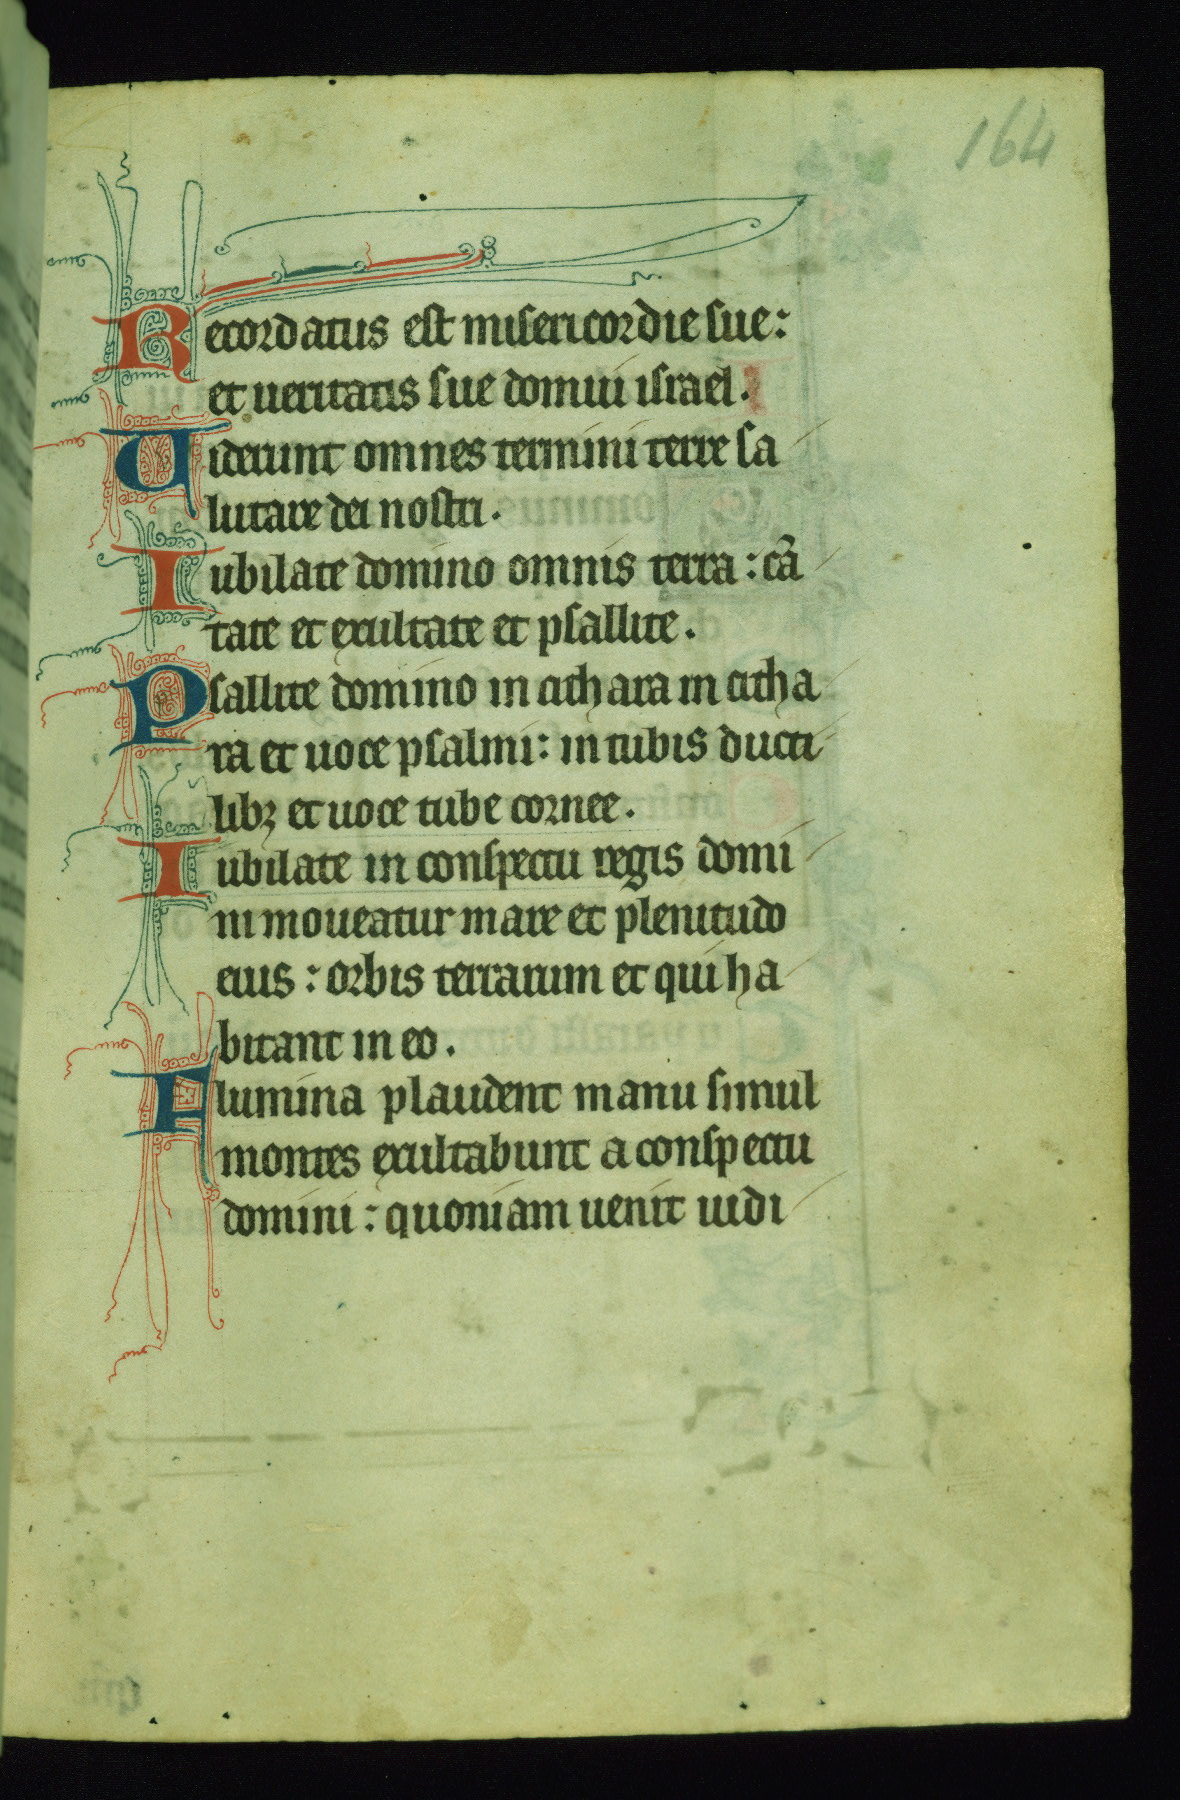 164
Recordatus est misericordie sue:
et ueritatis sue domui israel.
Uiderunt omnes termini terre sa
lutare dei nostri.
Iubilate domino omnis terra: cā
tate et exultate et psallite.
Psallite domino in cithara in citha
ra et uoce psalmi: in tubis ducti
libꝫ et uoce tube cornee.
Iubilate in conspectu regis domi
ni moueatur mare et plenitudo
eius: orbis terrarum et qui ha
bitant in eo.
Flumina plaudent manu simul
montes exultabunt a conspectu
domini: quoniam uenit iudi